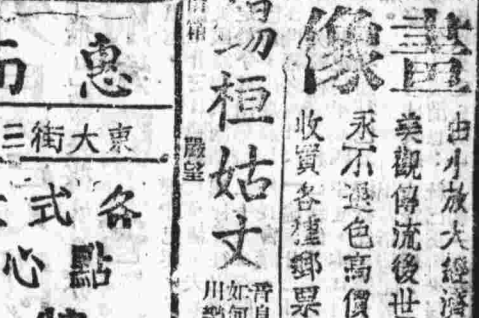 畫像
由小放大經濟
美觀傳流後世
永不退色高價
收買各種郵票
桓姑丈
如何
惠
東大街三
各式
點心